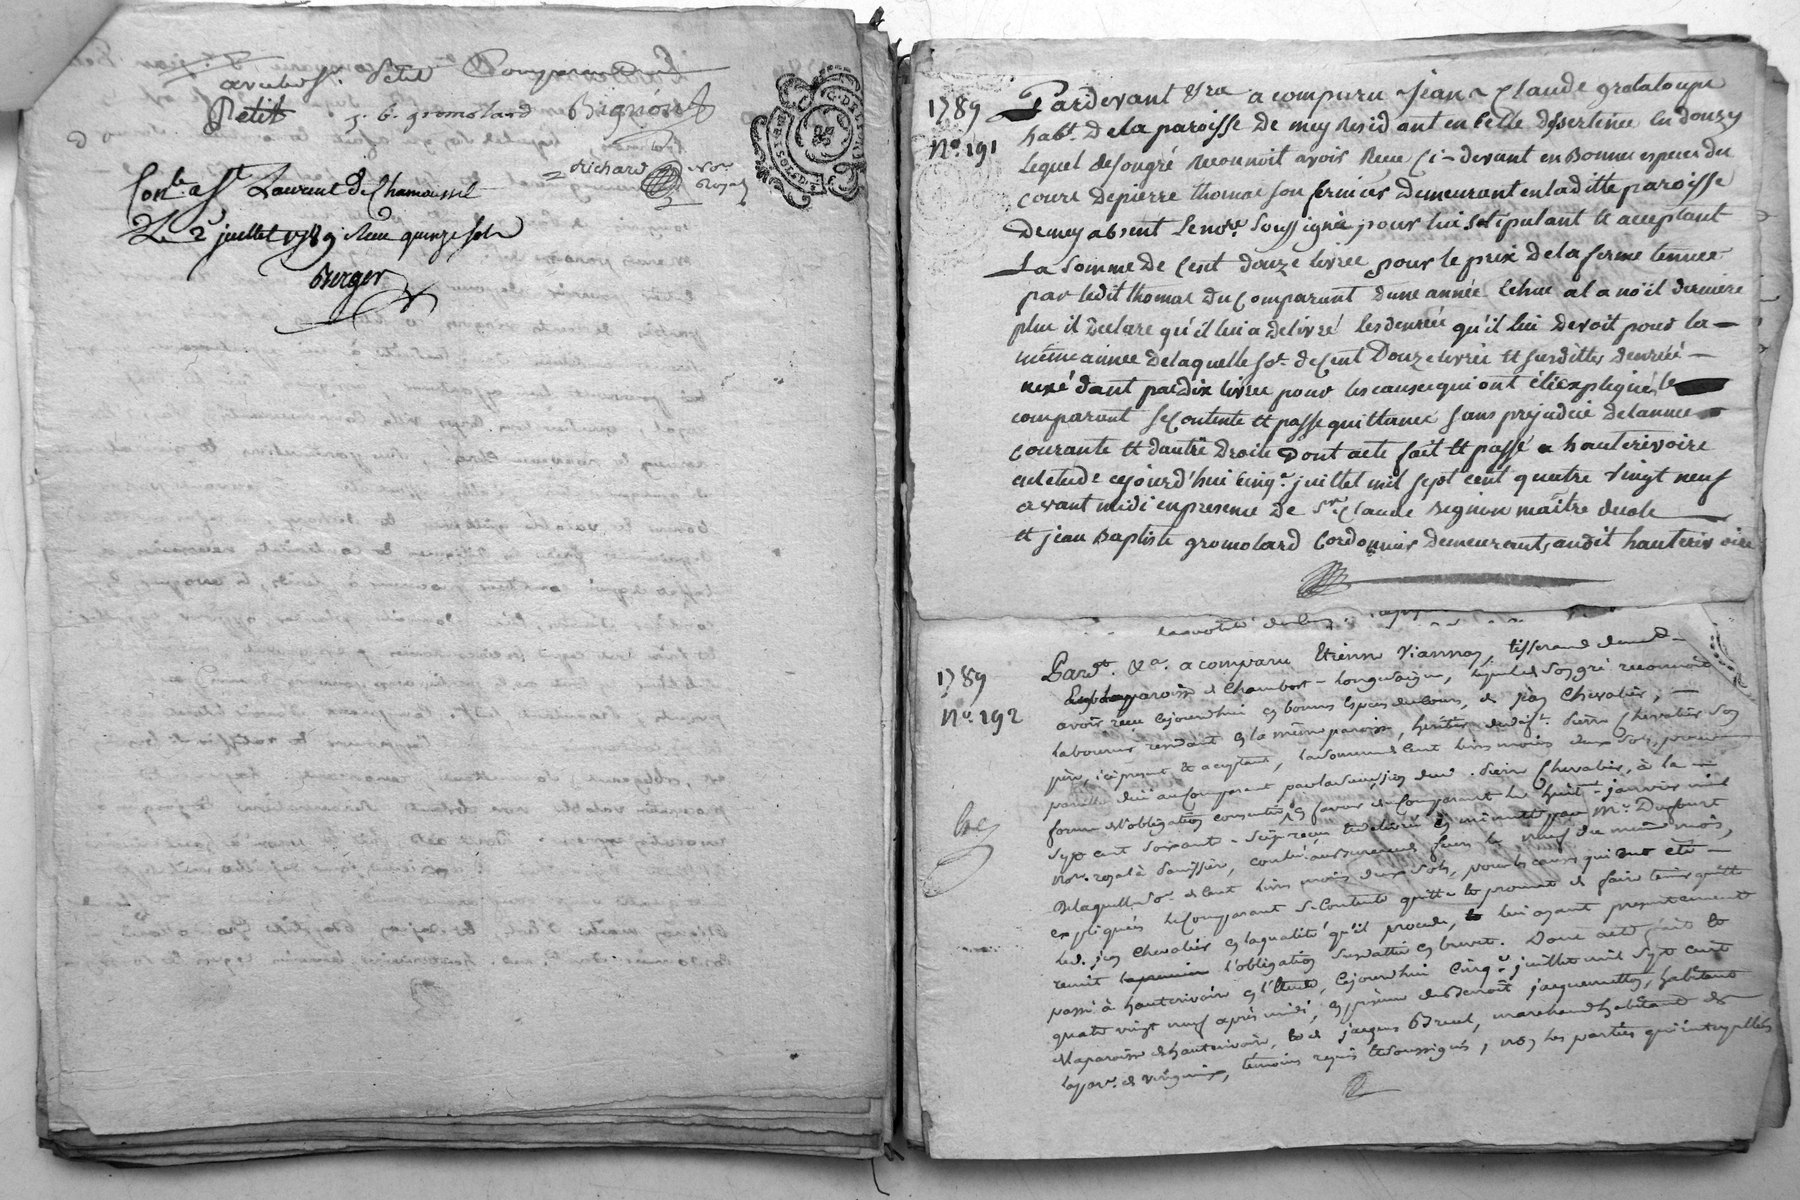 avec led. Sr. Petit Comparant
Petit j. b. gromolard Bignon
Richard Nore Royal
Conle. a St. Laurent de Chamousset
Le 2 juillet 1789 Reçu quinze sols
Berger
1789
No. 191
Pardevant &ra a comparu jean Claude grataloupe
habt. De la paroisse De mey Resid ant en celle
lequel de son gré Reconnoit avoir Reçu Ci-devant en Bonnes especes du
cours de pierre thomas son fermier demeurant en laditte paroisse
De mey absent Le nore. Soussigné pour lui stipulant et acceptant
La Somme De Cent douze livres pour le prix de la ferme tenue
par ledit thomas du Comparant d'une année Echue a la noïl derniere
plus il Declare qu'il lui a delivré les denrées qu'il lui Devoit pour la
même année de laquelle se. de Cent Douze livres et susdittes denrées
n'exédant pas dix livres pour les causes qui ont été expliqués le
comparant se Contente et passe quittance sans prejudice de l'année
courante et d'autre Droits Dont acte fait et passé a hauterivoire
en etude cejourd'hui Cinq. juillet mil sept cent quatre vingt neuf
avant midi en presence De Sr. Claude Bignon maître d'ecole
et jean Baptiste gromolard Cordonnier Demeurants audit hauterivoire
1789
No. 192
Pardt. &a. a comparu Etienne Viannay, tisserand demt.
paroisse de Chambost-longessaigne, lequel de Son gré reconnoit
avoir reçu cejourdhui en bonnes Especes du Cours, de jean Chevalier,
laboureur résidant en la même paroisse, héritier de déft. Pierre Chevalier Son
père, ici présent & acceptant, la Somme de Cent livres moins deux Sols,
pareille due au Comparant par la Succession dud. Pierre Chevalier, à la
forme de l'obligation consentie en faveur du Comparant le huit janvier mil
Sept cent Soixante-Seize reçue en minutte par Me. Dupburt
Nore. royal à Panissière, le neuf du même mois,
De laquelle So. de Cent livres moins deux Sols, pour les causes qui ont été
expliquées le Comparant Se Contente quitte & promet de faire tenir quitte
led. jean Chevalier en la qualité qu'il procede, lui ayant présentement
remit l'obligation Susdatée en brevet. Dont acte fait &
passé à hauterivoire en l'Etude, Cejourdhui Cinq. juillet mil Sept cent
quatre vingt neuf après midi, en présence de Benoît jacquemetton, habitant
de la paroisse d'hauterivoire, & de jacques Breul, marchand habitant de
la par. de virigneux, témoins requis & soussignés, non les parties qui interpellés